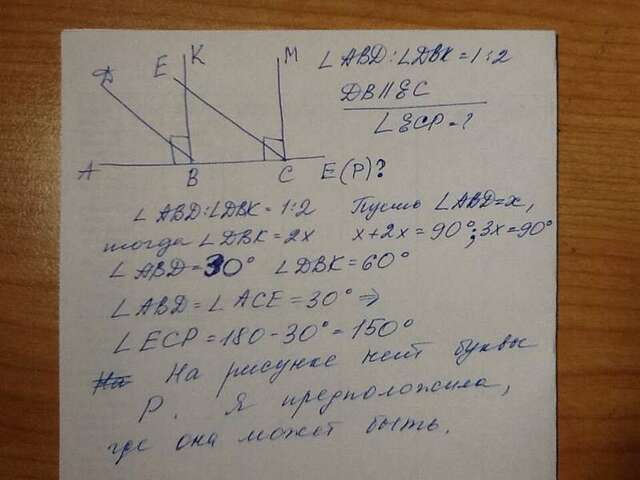 D E K M
A B C E(P)?
∠ABD:∠DBK=1:2
DB∥EC
∠ECP=?
∠ABD:∠DBK=1:2 Пусть ∠ABD=x,
тогда ∠DBK=2x x+2x=90°; 3x=90°
∠ABD=30° ∠DBK=60°
∠ABD=∠ACE=30° ⇒
∠ECP=180-30°=150°
На рисунке нет буквы
P. Я предположила,
где она может быть.